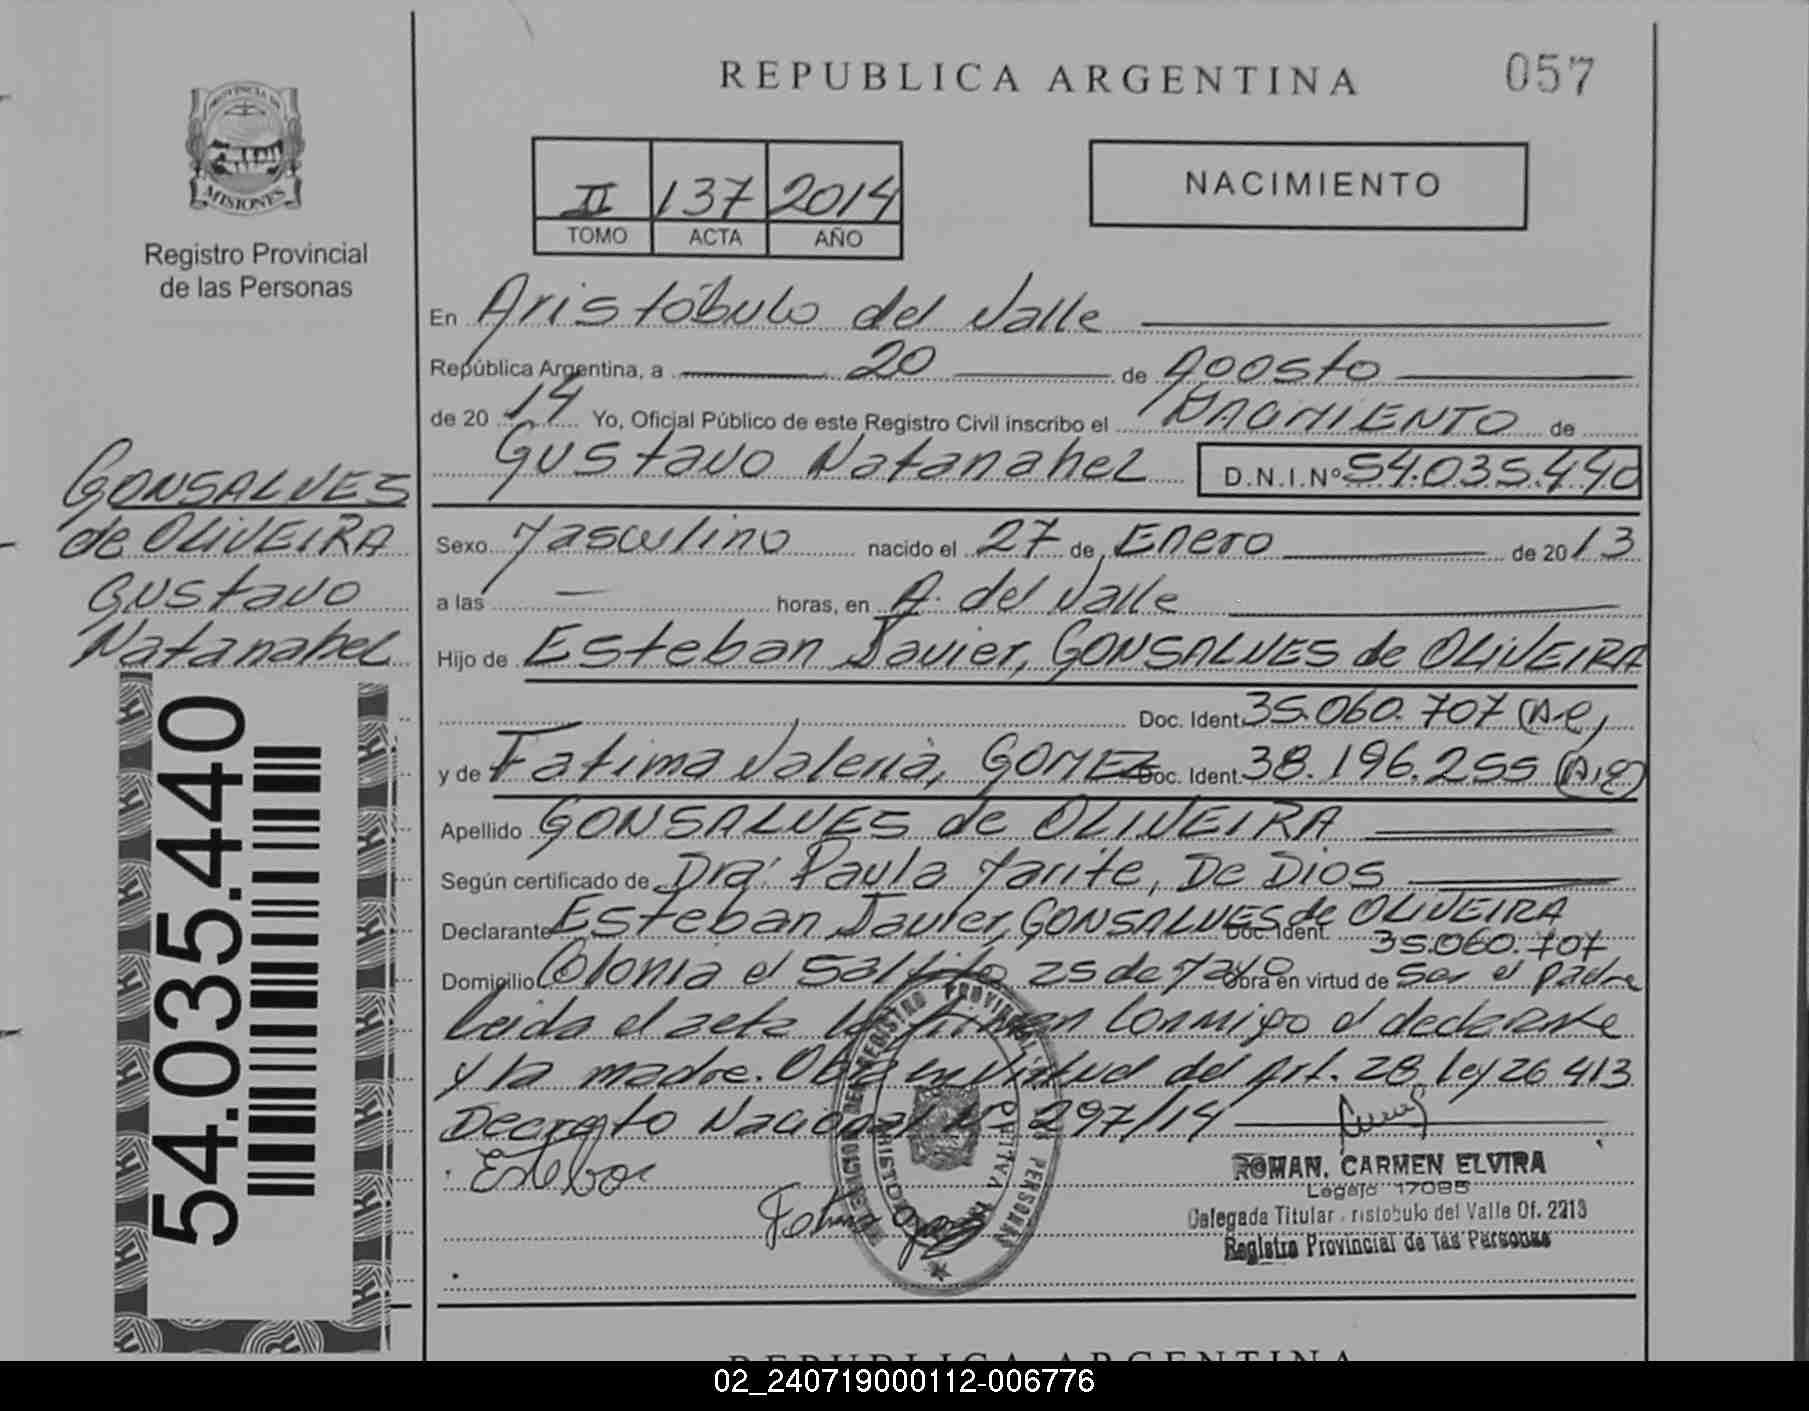 REPUBLICA ARGENTINA
057
PROVINCIA DE
MISIONES
Registro Provincial
de las Personas
II 137 2014
TOMO ACTA AÑO
NACIMIENTO
En Aristóbulo del Valle
República Argentina, a 20 de Agosto
de 2014 Yo, Oficial Público de este Registro Civil inscribo el NACIMIENTO de
Gustavo Natanahel D.N.I.Nº 54.035.440
GONSALVES
de OLIVEIRA
Gustavo
Natanahel
54.035.440
Sexo Masculino nacido el 27 de Enero de 2013
a las — horas, en A. del Valle
Hijo de Esteban Javier, GONSALVES de OLIVEIRA
Doc. Ident. 35.060.707 (A-e)
y de Fatima Valeria, GOMEZ Doc. Ident. 38.196.255
Apellido GONSALVES de OLIVEIRA
Según certificado de Dra. Paula Marite, De Dios
Declarante Esteban Javier, GONSALVES de OLIVEIRA Doc. Ident. 35.060.707
Domicilio Colonia el Saltito 25 de Mayo Obra en virtud de ser el padre
Leida el acta la firman conmigo el declarante
y la madre. Obra en virtud del Art. 28 Ley 26 413
Decreto Nacional Nº 297/14
Esteban
ROMAN, CARMEN ELVIRA
Legajo 17085
Delegada Titular ristobulo del Valle Of. 2213
Registro Provincial de las Personas
REPUBLICA ARGENTINA
02_240719000112-006776